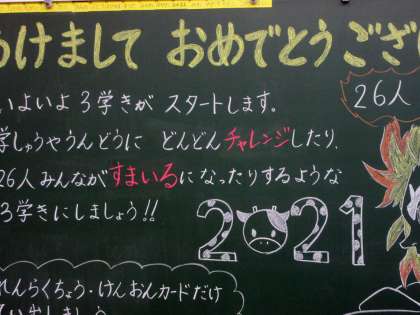 けまして おめでとう ござ
いよいよ 3学きが スタートします。
26人
学しゅうやうんどうに どんどんチャレンジしたり、
26人みんながすまいるになったりするような
3学きにしましょう!!
2021
れんらくちょう・けんおんカードだけ